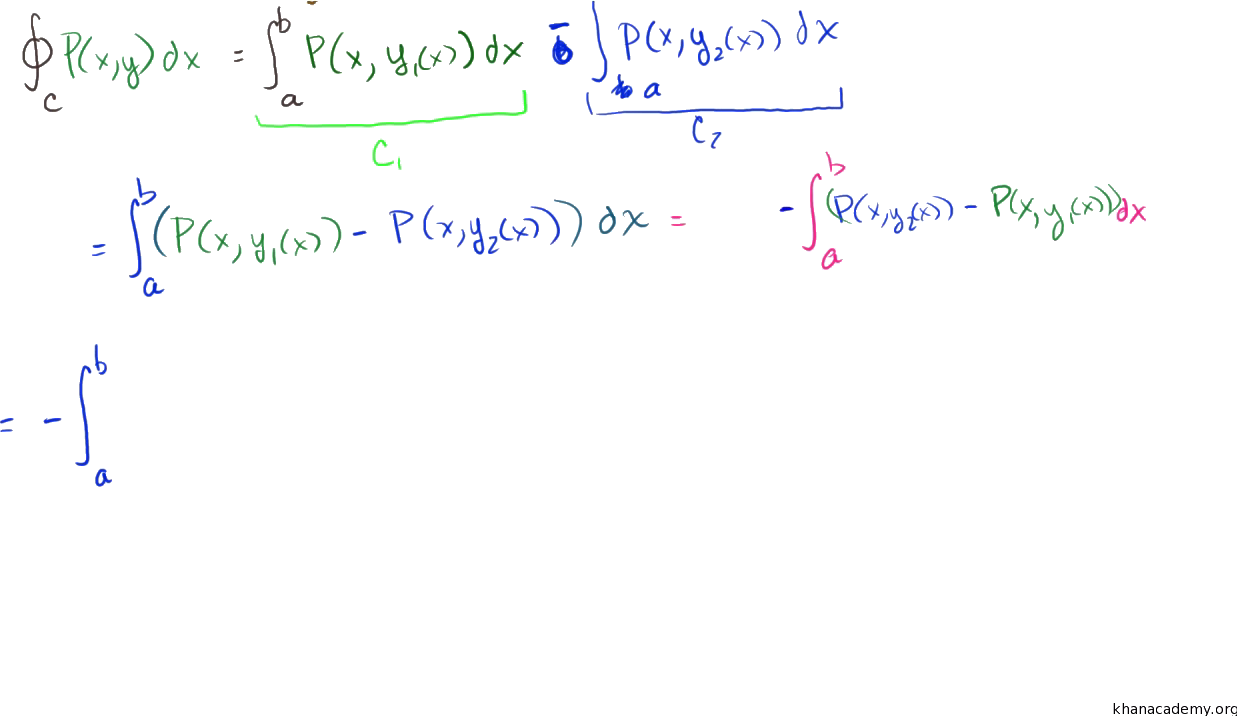 ∮_C P(x,y) dx = ∫_a^b P(x, y₁(x)) dx − ∫_a P(x, y₂(x)) dx
C₁ C₂
= ∫_a^b (P(x, y₁(x)) − P(x, y₂(x))) dx = − ∫_a^b (P(x, y₂(x)) − P(x, y₁(x))) dx
= − ∫_a^b
khanacademy.org